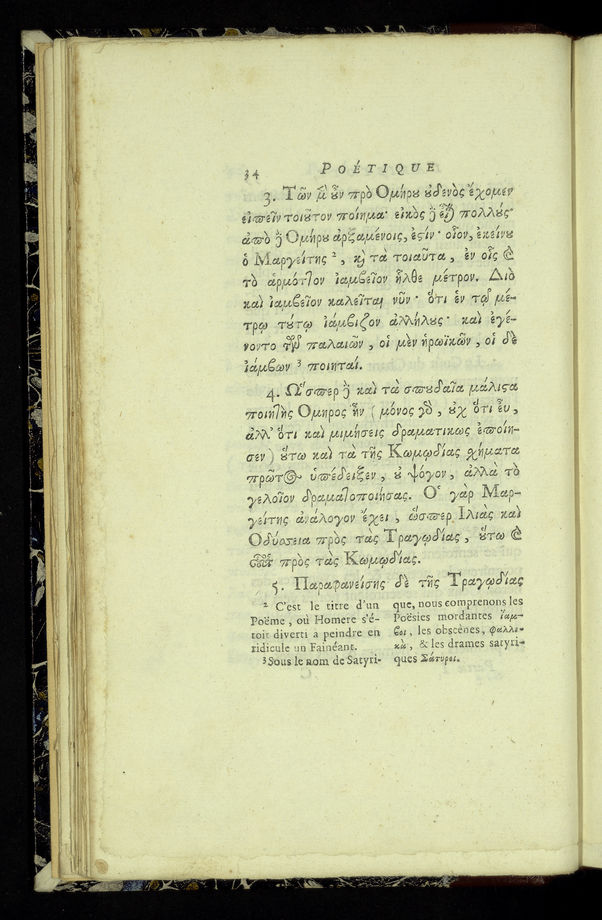 34 POÉTIQUE
3. Τῶν μὲν ὖν πρὸ Ομήρυ ὐδενὸς ἔχομεν
εἰπεῖν τοιῦτον ποίημα· εἰκὸς δὲ εἶναι πολλύς·
ἀπὸ δὲ Ομήρυ ἀρξαμένοις, ἐςίν· οἷον, ἐκείνυ
ὁ Μαργείτης ², κὶ τὰ τοιαῦτα, ἐν οἷς καὶ
τὸ ἁρμόττον ἰαμβεῖον ἦλθε μέτρον. Διὸ
καὶ ἰαμβεῖον καλεῖται νῦν· ὅτι ἐν τῷ μέ-
τρῳ τύτῳ ἰάμβιζον ἀλλήλυς· καὶ ἐγέ-
νοντο τῶν παλαιῶν, οἱ μὲν ἡρωϊκῶν, οἱ δὲ
ἰάμβων ³ ποιηταί.
4. Ὥσπερ δὲ καὶ τὰ σπυδαῖα μάλιςα
ποιητὴς Ομηρος ἦν (μόνος γὰρ, ὐχ ὅτι εὖ,
ἀλλ' ὅτι καὶ μιμήσεις δραματικως ἐποίη-
σεν) ὕτω καὶ τὰ τῆς Κωμῳδίας σχήματα
πρῶτος ὑπέδειξεν, ὐ ψόγον, ἀλλὰ τὸ
γελοῖον δραματοποιήσας. Ὁ γὰρ Μαρ-
γείτης ἀνάλογον ἔχει, ὥσπερ Ιλιὰς καὶ
Οδύσσεια πρὸς τὰς Τραγῳδίας, ὕτω καὶ
ὗτος πρὸς τὰς Κωμῳδίας.
5. Παραφανείσης δὲ τῆς Τραγῳδίας
² C'est le titre d'un
Poëme, où Homere s'é-
toit diverti a peindre en
ridicule un Fainéant.
³ Sous le nom de Satyri-
que, nous comprenons les
Poësies mordantes ἴαμ-
βοι, les obscènes, φαλλι-
κὰ, & les drames satyri-
ques Σάτυροι.